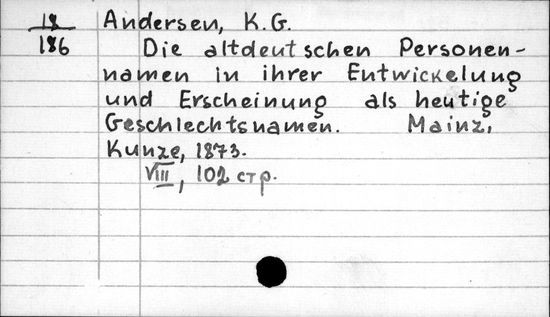 18 Andersen, K.G.
186 Die altdeutschen Personen-
namen in ihrer Entwickelung
und Erscheinung als heutige
Geschlechtsnamen. Mainz,
Kunze, 1873.
VIII, 102 стр.